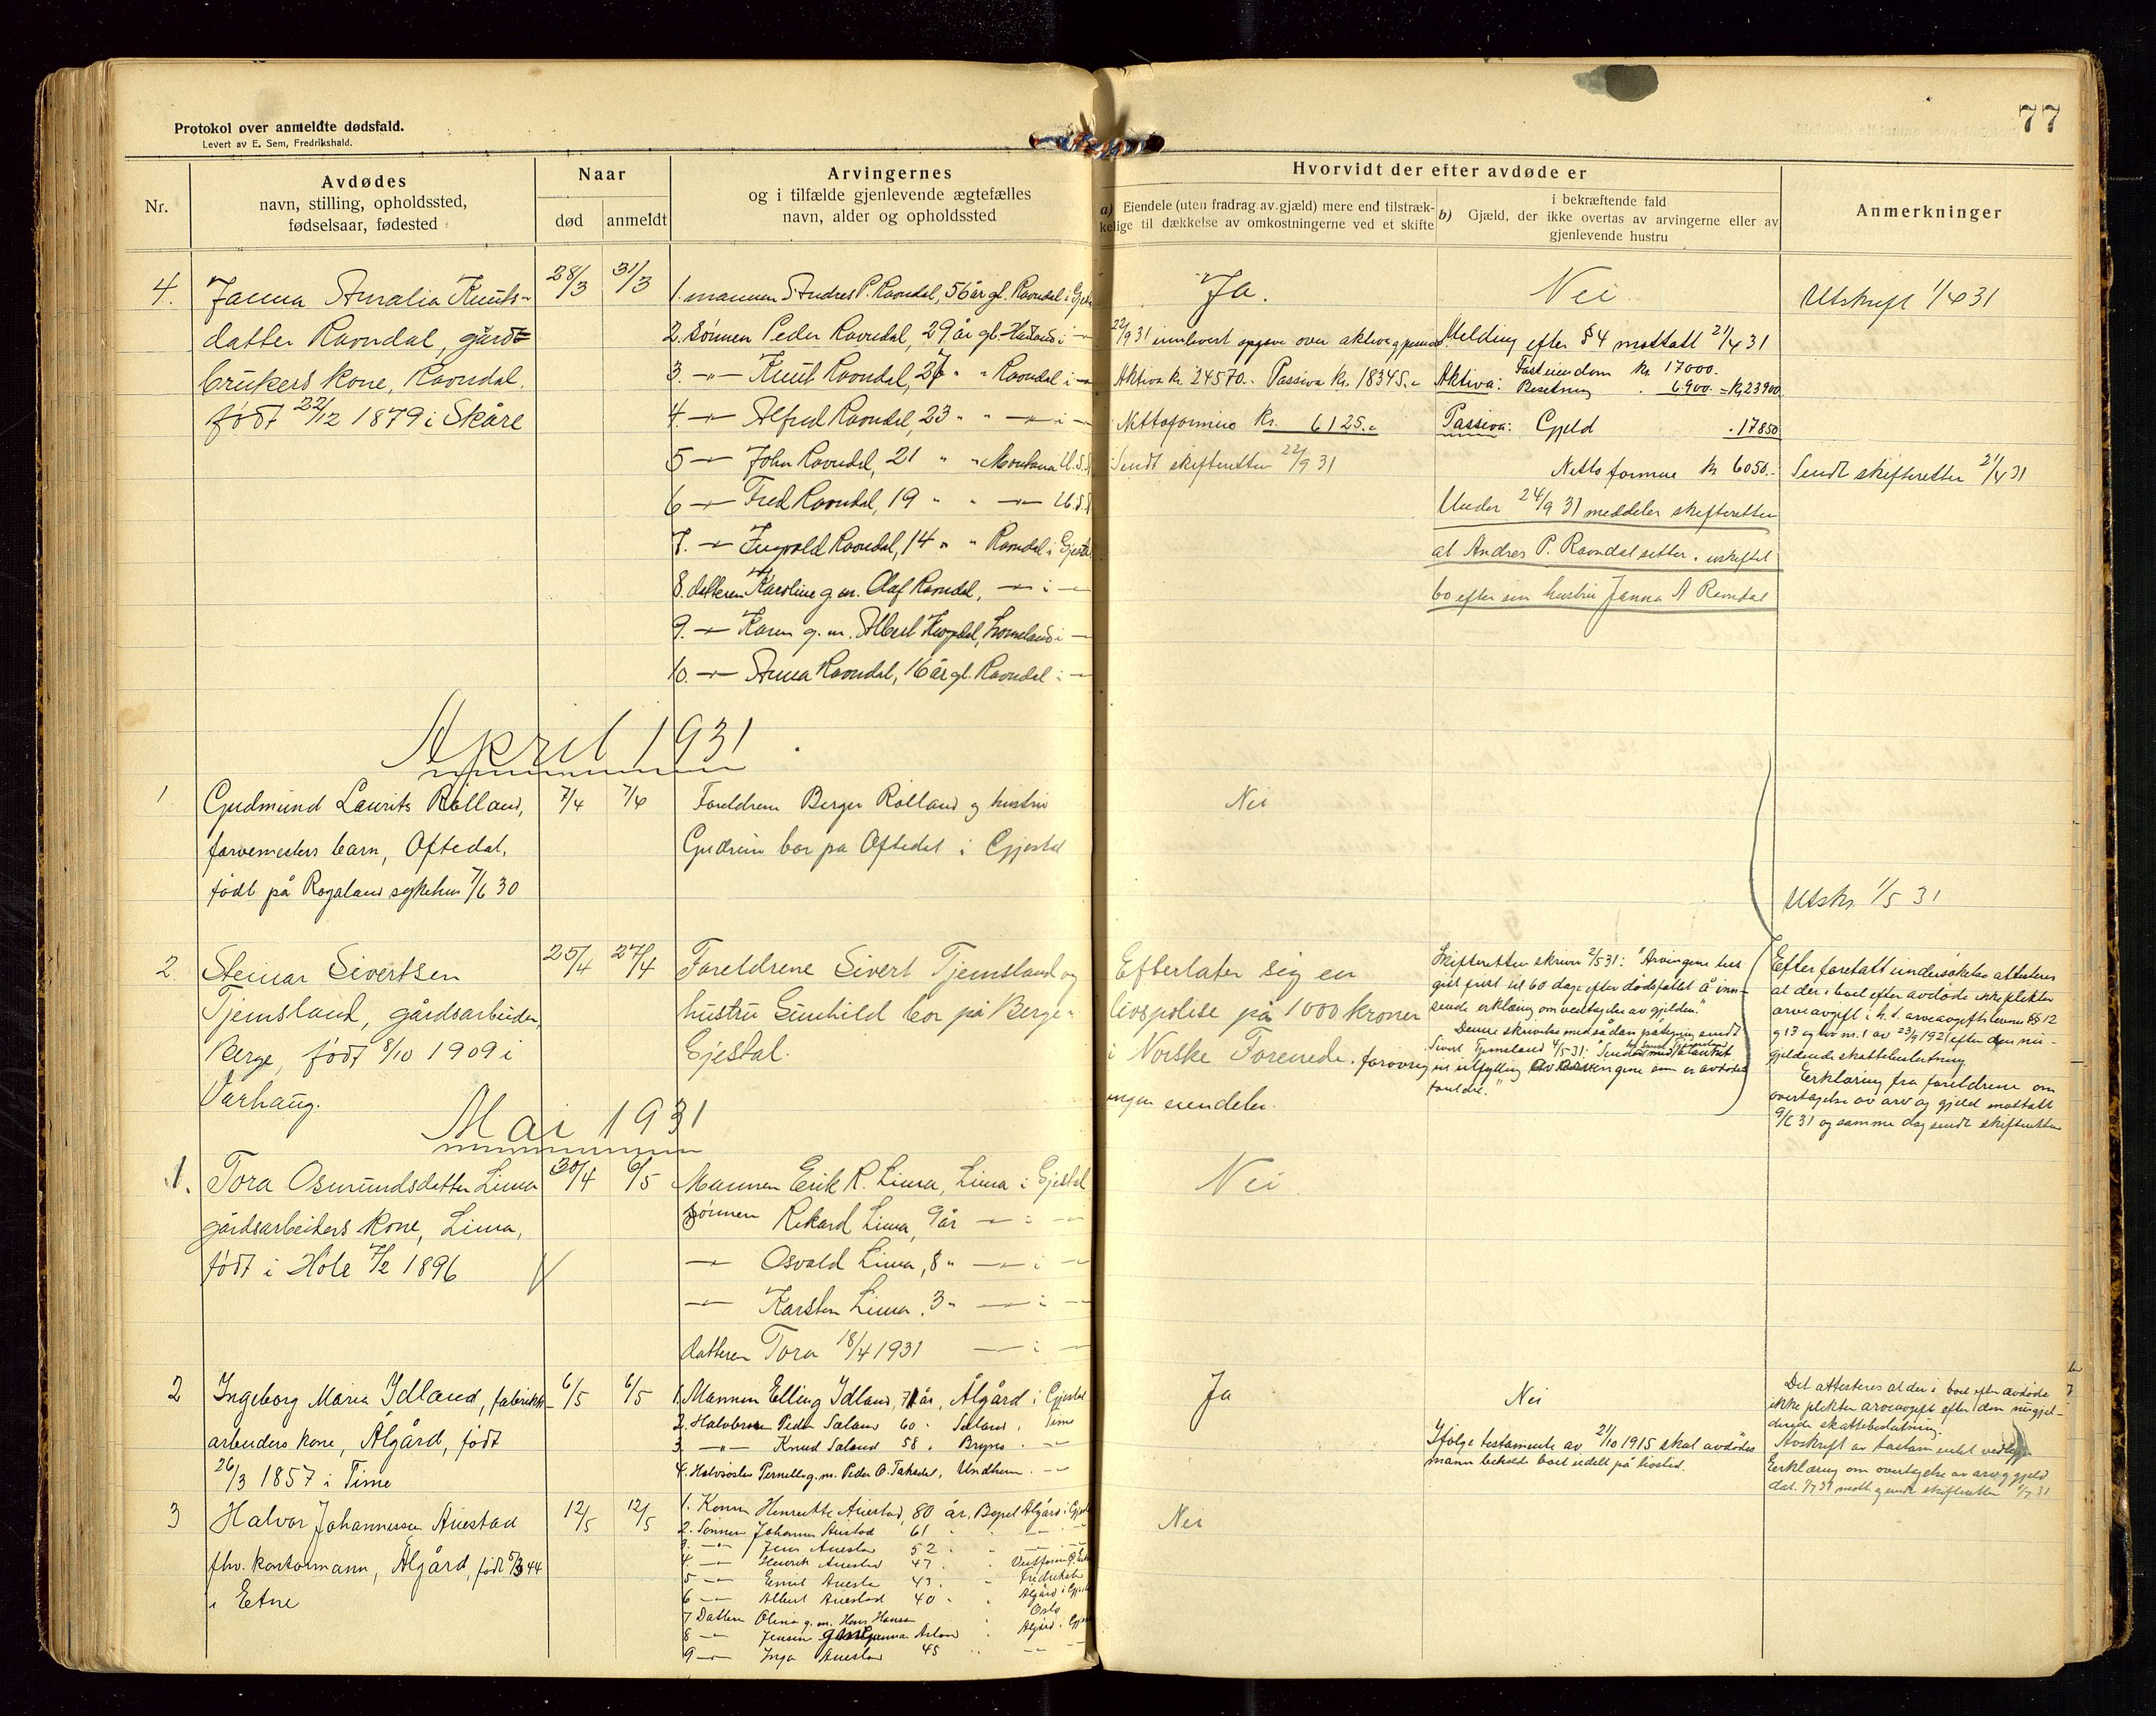 77
Protokol over anmeldte dødsfald.
Levert av E. Sem, Fredrikshald.
Nr.
Avdødes
navn, stilling, opholdssted,
fødselsaar, fødested
Naar
død
anmeldt
Arvingernes
og i tilfælde gjenlevende ægtefælles
navn, alder og opholdssted
Hvorvidt der efter avdøde er
a) Eiendele (uten fradrag av gjæld) mere end tilstræk-
kelige til dækkelse av omkostningerne ved et skifte
i bekræftende fald
b) Gjæld, der ikke overtas av arvingerne eller av
gjenlevende hustru
Anmerkninger
4.
Janna Amalia Knuts-
datter Ravndal, gårdt-
brukers kone, Ravndal.
født 22/12 1879 i Skåre
28/3
31/3
1. mannen Andres P. Ravndal, 56 år gl. Ravndal i
2. Sønnen Peder Ravndal, 29 år gl. Hadland i -"-
3. -"- Knut Ravndal, 27 " " Ravndal i -"-
4. -"- Alfred Ravndal, 23 " " -"- i -"-
5 -"- John Ravndal, 21 " " Montana U.S.
6 -"- Fred Ravndal, 19 " " -"- U.S.
7. -"- Ingvald Ravndal, 14 " " Ravndal i
8. datteren Karoline g.m. Olaf Ravndal, -"- i -"-
9. -"- Karen g.m. Albert i -"-
10. -"- Anna Ravndal, 16 år gl. Ravndal i -"-
Ja.
22/9 31 innlevert opgave over aktiva
Aktiva kr. 24570.- Passiva kr. 18345.-
Nettoformue kr. 6125.-
Sendt skifteretten 22/9 31
Nei.
Melding efter § 4 mottatt 21/4 31
Aktiva: Fast eiendom kr. 17000.
Besetning " 6900. = kr 23900
Passiva: Gjeld " 17850
Netto formue kr 6050.-
Under 24/9 31 meddeler skifteretten
at Andres P. Ravndal sitter i uskiftet
bo efter sin hustru Janna A Ravndal
Utskrift 1/4 31
Sendt skifteretten 21/4 31
April 1931
1
Gudmund Laurits Rolland,
farvemesters barn, Oftedal,
født på Rogaland sykehus 7/6 30
7/4
7/4
Foreldrene Berger Rolland og hustru
Gudrun bor på Oftedal i Gjestal
Nei
Utskr. 1/5 31
2
Steinar Sivertsen
Tjemsland, gårdsarbeider,
Berge, født 8/10 1909 i
Varhaug.
25/4
27/4
Foreldrene Sivert Tjemsland og
hustru Gunhild bor på Berge i
Gjestal.
Efterlater sig en
livspolise på 1000 kroner
i Norske Forenede. forøvrig
ingen eiendeler.
Skifteretten skriver 2/5 31: "Arvingene
gitt frist til 60 dage efter dødsfallet å inn-
sende erklæring om vedtagelse av gjelden."
Denne skrivelse med sådan påtegning sendt
Sivert Tjemsland 4/5-31:
til utfylling av arvingene som er avdødes
foreldre."
Efter foretatt undersøkelse attesteres
at der i boet efter avdøde ikke plikter
arveavgift i h.t. arveavgiftslovens §§ 12
og 13 og lov nr. 1 av 23/9 1921 efter den nu-
gjeldende skattebeslutning
Erklæring fra foreldrene om
overtagelse av arv og gjeld mottatt
9/6 31 og samme dag sendt skifteretten
Mai 1931
1.
Tora Osmundsdatter Lima
gårdsarbeiders kone, Lima,
født i Høle 7/2 1896
30/4
6/5
Mannen Erik R. Lima, Lima i Gjestal
Sønnen Rikard Lima, 9 år -"- i -"-
-"- Osvald Lima, 8 " -"- i -"-
-"- Karsten Lima, 3 " -"- i -"-
datteren Tora 18/4 1931 -"- i -"-
Nei.
2
Ingeborg Maria Idland, fabrikk-
arbeiders kone, Ålgård, født
26/3 1857 i Time
6/5
6/5
1. Mannen Elling Idland, 71 år, Ålgård i Gjestal
2. Halvbror Peder Sæland 60 " Sæland i Time
3 -"- Knud Sæland 58 " Bryne " -"-
4. Halvsøster Pernelle g.m. Peder O. Taksdal, Undheim " -"-
Ja
Nei
Ifølge testamente av 21/10 1915 skal avdødes
mann beholde boet udelt på livstid.
Det attesteres at der i boet efter avdøde
ikke plikter arveavgift efter den nugjel-
dende skattebeslutning.
Avskrift av testamentet vedlegges
Erklæring om overtagelse av arv og gjeld
3
Halvor Johannessen Auestad
fhv. kontormann, Ålgård, født 5/3 44
i Etne
12/5
12/5
1. Konen Henriette Auestad, 80 år, Ålgård i
2. Sønnen Johannes Auestad 61 " -"-
3. -"- Jens Auestad 52 " -"-
4. -"- Henrik Auestad 47 "
5 -"- Emil Auestad 43 " Fredrikstad
6 -"- Albert Auestad 40 " Ålgård i
7 Datter Olina g.m. Hans Hansen Oslo
8 -"- Ålgård i
9 -"- Inga Auestad 45 -"-
Nei